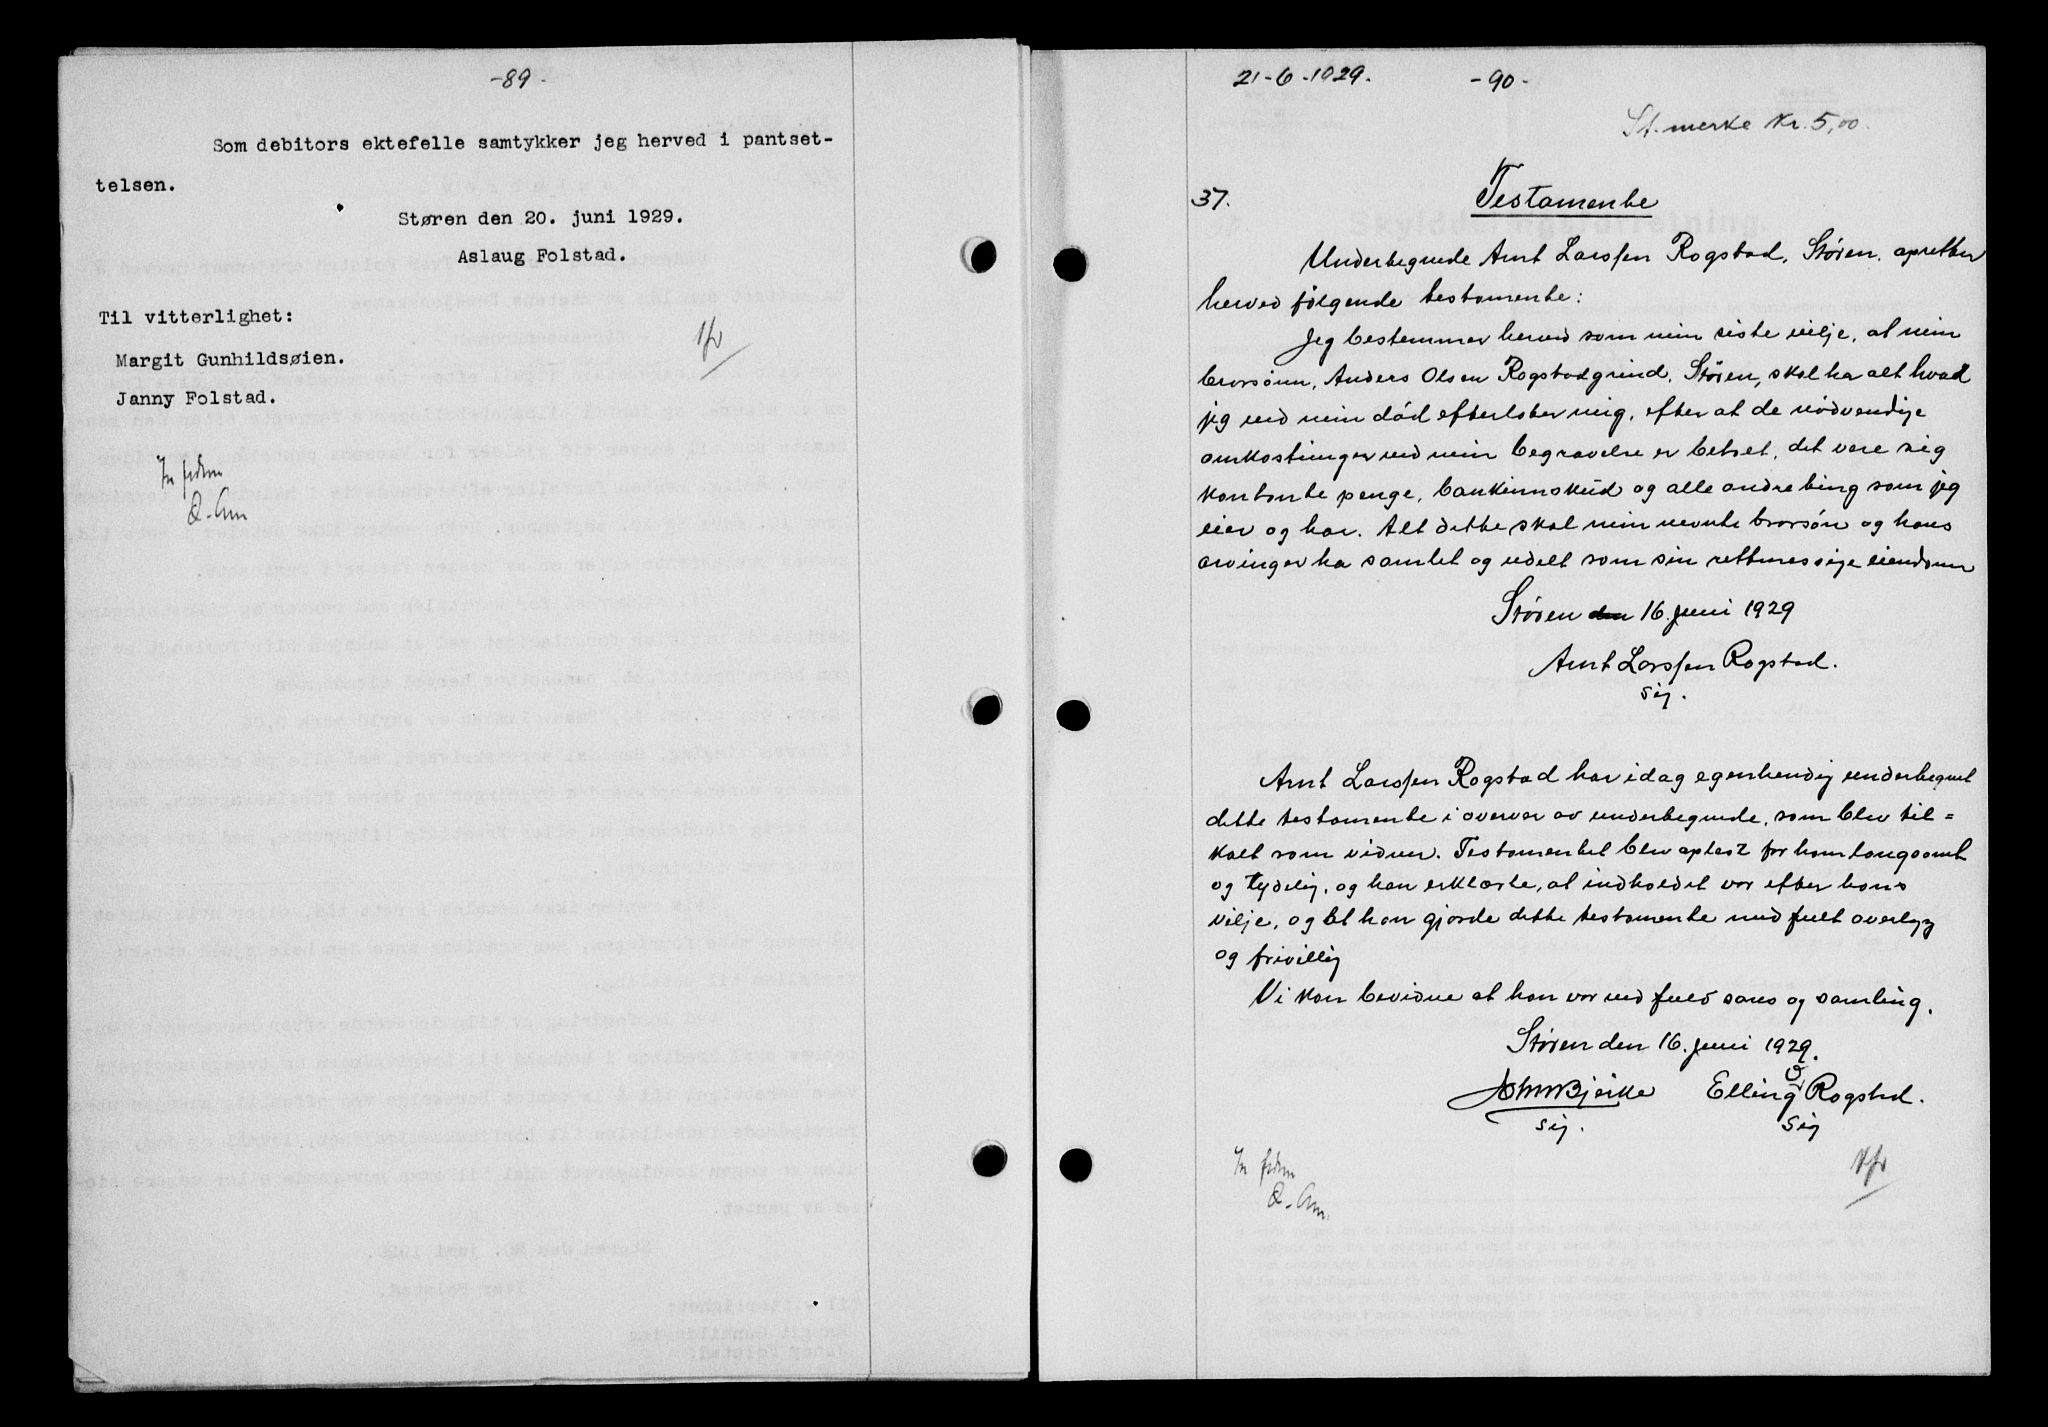 -89-
Som debitors ektefelle samtykker jeg herved i pantset-
telsen.
Støren den 20. juni 1929.
Aslaug Folstad.
Til vitterlighet:
Margit Gunhildsøien.
Janny Folstad.
In fidem
21-6-1929. -90-
St. merke Kr. 5,00.
37. Testamente
Undertegnede Arnt Larssen Rogstad, Støren, opretter
herved følgende testamente:
Jeg bestemmer herved som min siste vilje, at min
brorsønn, Anders Olsen Rogstadgrind, Støren, skal ha alt hvad
jeg ved min død efterlater mig, efter at de nødvendige
omkostninger ved min begravelse er betalt, det være sig
kontante penge, bankinnskud og alle andre ting som jeg
eier og har. Alt dette skal min nevnte brorsøn og hans
arvinger ha samlet og udelt som sin rettmessige eiendom
Støren den 16. juni 1929
Arnt Larssen Rogstad.
sig.
Arnt Larssen Rogstad har idag egenhendig undertegnet
dette testamente i overvær av undertegnede, som blev til=
kalt som vidner. Testamentet blev oplest for ham langsomt
og tydelig, og han erklærte, at indholdet var efter hans
vilje, og at han gjorde dette testamente med fult overlegg
og frivillig
Vi kan bevidne at han var ved fuld sans og samling.
Støren den 16. juni 1929.
John Bjerke Elling O Rogstad.
sig. sig
In fidem